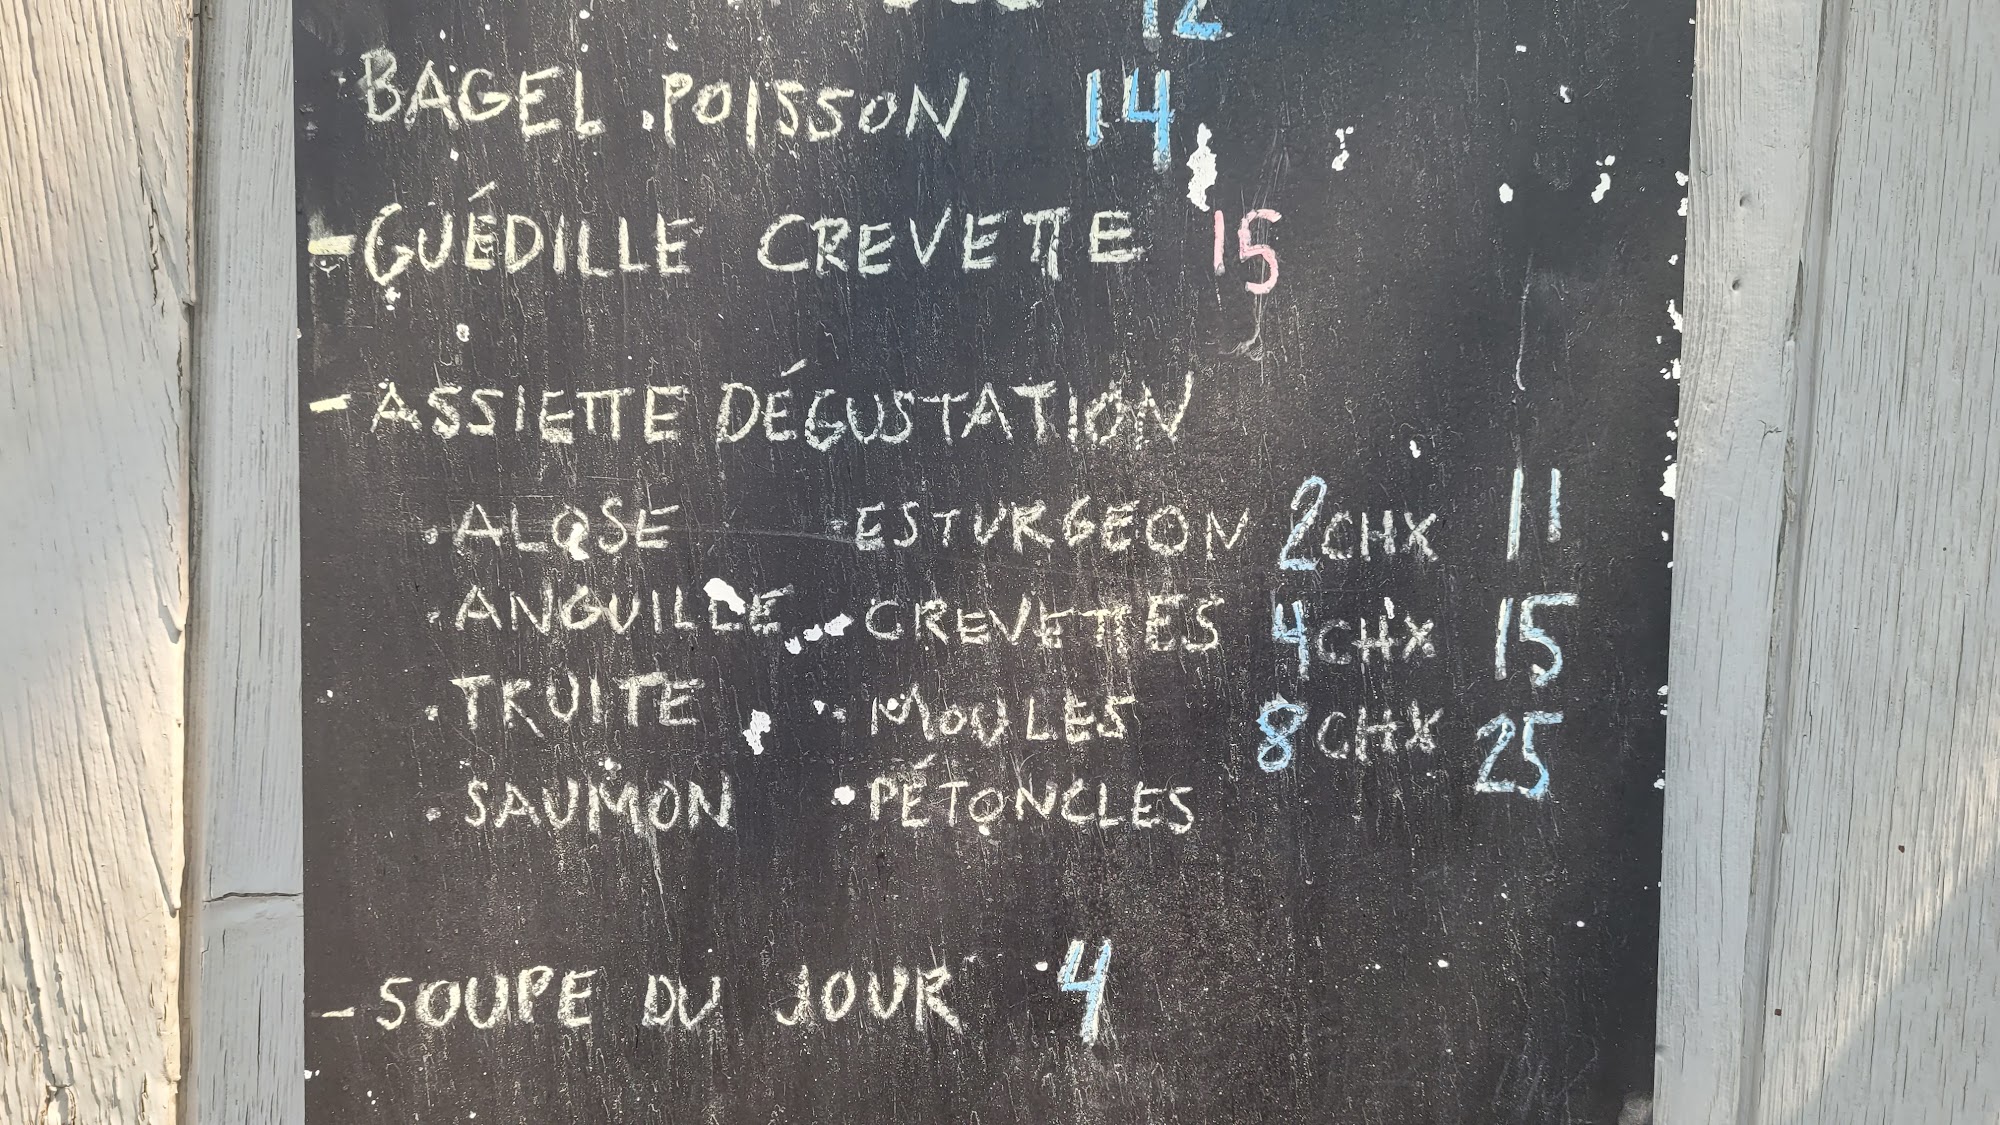 12
BAGEL POISSON 14
- GUÉDILLE CREVETTE 15
- ASSIETTE DÉGUSTATION
. ALOSE . ESTURGEON 2 CHX 11
. ANGUILLE . CREVETTES 4 CHX 15
. TRUITE . MOULES 8 CHX 25
. SAUMON . PÉTONCLES
- SOUPE DU JOUR 4